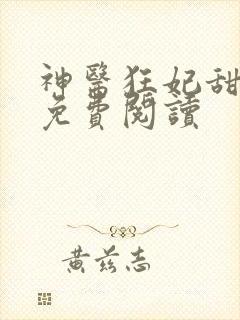 神醫狂妃甜
免費閱讀
黃茲志